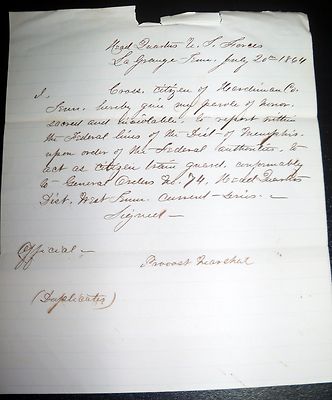 Head Quarters U. S. Forces
La Grange Tenn. July 20th 1864
I. Cross, citizen of Hardiman Co.
Tenn. hereby give my parole of honor,
sacred and inviolable to report within
the Federal lines of the Dist. of Memphis.
upon order of the Federal authorities, to
act as citizen train guard, conformably
to General Orders No. 74, Head Quarters
Dist. West Tenn. current series.
Signed
Official
Provost Marshal
(Duplicates)